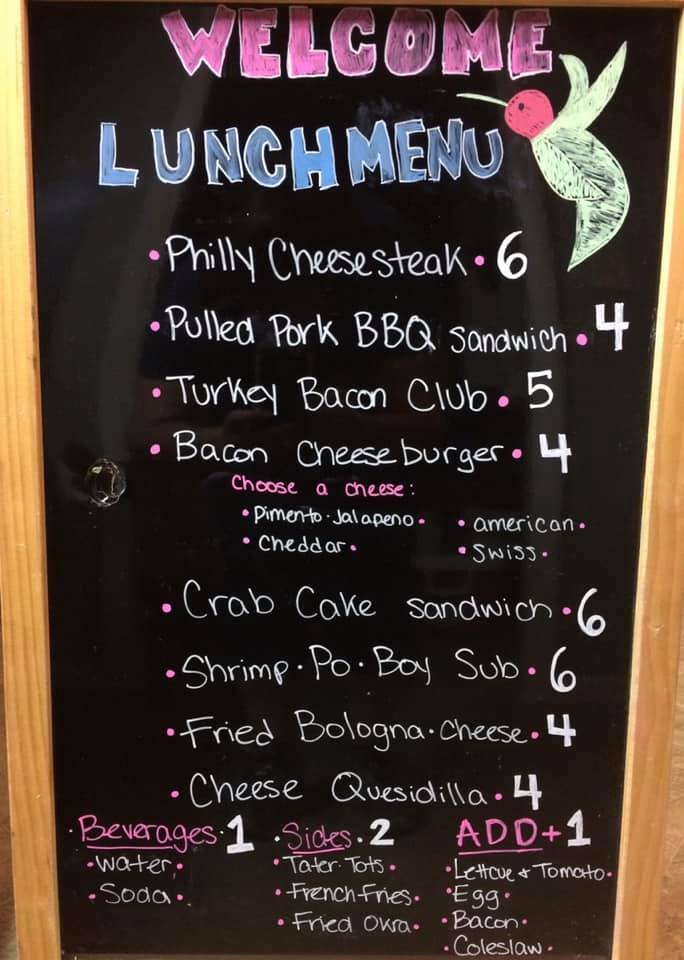 WELCOME
LUNCH MENU
• Philly Cheesesteak • 6
• Pulled Pork BBQ sandwich • 4
• Turkey Bacon Club • 5
• Bacon Cheeseburger • 4
Choose a cheese:
• Pimento-Jalapeno • • american •
• Cheddar • • Swiss •
• Crab Cake sandwich • 6
• Shrimp • Po • Boy Sub • 6
• Fried Bologna • cheese • 4
• Cheese Quesidilla • 4
• Beverages • 1
• water •
• Soda •
• Sides • 2
• Tater Tots •
• French Fries •
• Fried Okra •
ADD + 1
• Lettcue + Tomato •
• Egg •
• Bacon •
• Coleslaw •